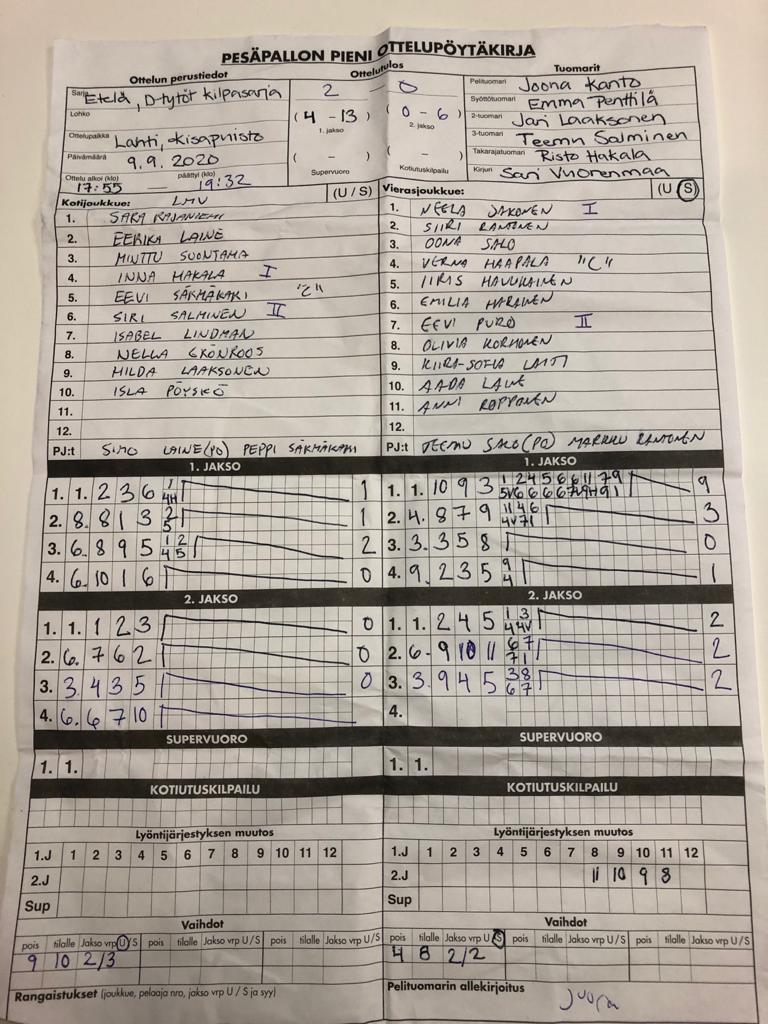 PESÄPALLON PIENI OTTELUPÖYTÄKIRJA
Ottelun perustiedot
Sarja Etelä, D-tytöt kilpasarja
Lohko
Ottelupaikka Lahti, Kisapuisto
Päivämäärä 9.9.2020
Ottelu alkoi (klo) päättyi (klo)
17:55 — 19:32
Ottelutulos
2 - 0
(4 - 13) (0 - 6)
1. jakso 2. jakso
( - ) ( - )
Supervuoro Kotiutuskilpailu
Tuomarit
Pelituomari Joona Kanto
Syöttötuomari Emma Penttilä
2-tuomari Jari Laaksonen
3-tuomari Teemu Salminen
Takarajatuomari Risto Hakala
Kirjuri Sari Vuorenmaa
Kotijoukkue: LMV (U / S)
1. SARA
2. EERIKA LAINE
3. MINTTU SUONTAMA
4. INNA HAKALA I
5. EEVI SÄRMÄKARI "C"
6. SIRI SALMINEN II
7. ISABEL LINDMAN
8. NELLA GRÖNROOS
9. HILDA LAAKSONEN
10. ISLA PÖYSKÖ
11.
12.
PJ:t SIMO LAINE (PO) PEPPI SÄRMÄKARI
Vierasjoukkue: (U S)
1. NEELA JAKONEN I
2. SIIRI RANTONEN
3. OONA SALO
4. VERNA HAAPALA "C"
5. IIRIS HAVUKAINEN
6. EMILIA
7. EEVI PURO II
8. OLIVIA KORHONEN
9. KIIRA-SOFIA LAHTI
10. AADA LAINE
11. ANNI ROPPONEN
12.
PJ:t TEEMU SALO (PO) MARKKU RANTONEN
1. JAKSO
1. 1. 2 3 6 1 4H 1
2. 8. 8 1 3 2 5 1
3. 6. 8 9 5 1 2 4 5 2
4. 6. 10 1 6 0
2. JAKSO
1. 1. 1 2 3 0
2. 6. 7 6 2 0
3. 3. 4 3 5 0
4. 6. 6 7 10
SUPERVUORO
1. 1.
KOTIUTUSKILPAILU
1. JAKSO
1. 1. 10 9 3 9
2. 4. 8 7 9 11 4 6 4V 7 1 3
3. 3. 3 5 8 0
4. 9. 2 3 5 9 4 1
2. JAKSO
1. 1. 2 4 5 1 3 4 4V 2
2. 6. 9 10 11 6 7 7 1 2
3. 3. 9 4 5 3 8 6 7 2
4.
SUPERVUORO
1. 1.
KOTIUTUSKILPAILU
Lyöntijärjestyksen muutos
1.J 1 2 3 4 5 6 7 8 9 10 11 12
2.J
Sup
Vaihdot
pois tilalle Jakso vrp U / S pois tilalle Jakso vrp U / S pois tilalle Jakso vrp U / S
9 10 2/3
Rangaistukset (joukkue, pelaaja nro, jakso vrp U / S ja syy)
Lyöntijärjestyksen muutos
1.J 1 2 3 4 5 6 7 8 9 10 11 12
2.J 11 10 9 8
Sup
Vaihdot
pois tilalle Jakso vrp U S pois tilalle Jakso vrp U / S pois tilalle Jakso vrp U / S
4 8 2/2
Pelituomarin allekirjoitus